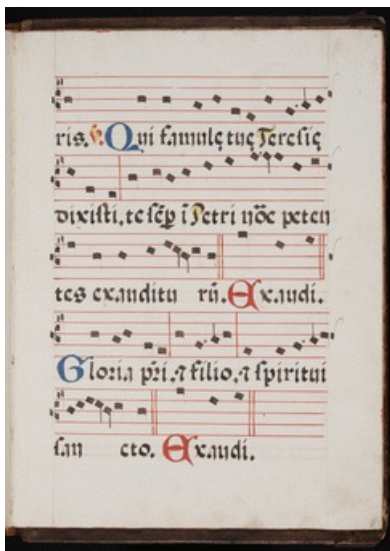 ris. V. Qui famulę tuę Teresię
dixisti, te sēp̱ ī Petri nōe peten
tes exauditu rū. Exaudi.
Gloria pr̄i, ⁊ filio, ⁊ spiritui
san cto. Exaudi.